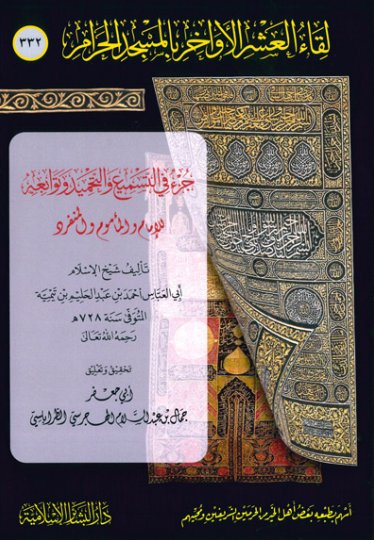 لقاء العشر الأواخر بالمسجد الحرام
٣٣٢
جزء في التسميع والتحميد وتوابعه
للإمام والمأموم والمنفرد
تأليف شيخ الإسلام
أبي العباس أحمد بن عبد الحليم بن تيمية
المتوفى سنة ٧٢٨ هـ
رحمه الله تعالى
تحقيق وتعليق
أبي جعفر
جمال بن عبد السلام الهجرسي الطرابلسي
أسهم بطبعه بعض أهل الخير من الحرمين الشريفين ومحبيهم
دار البشائر الإسلامية